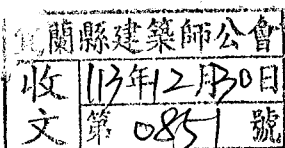 宜蘭縣建築師公會
收文
113年12月30日
第 0851 號